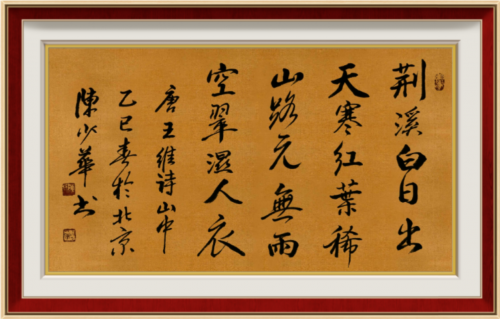 荆溪白日出
天寒红葉稀
山路元無雨
空翠湿人衣
唐王维诗山中
乙巳春於北京
陳少華书